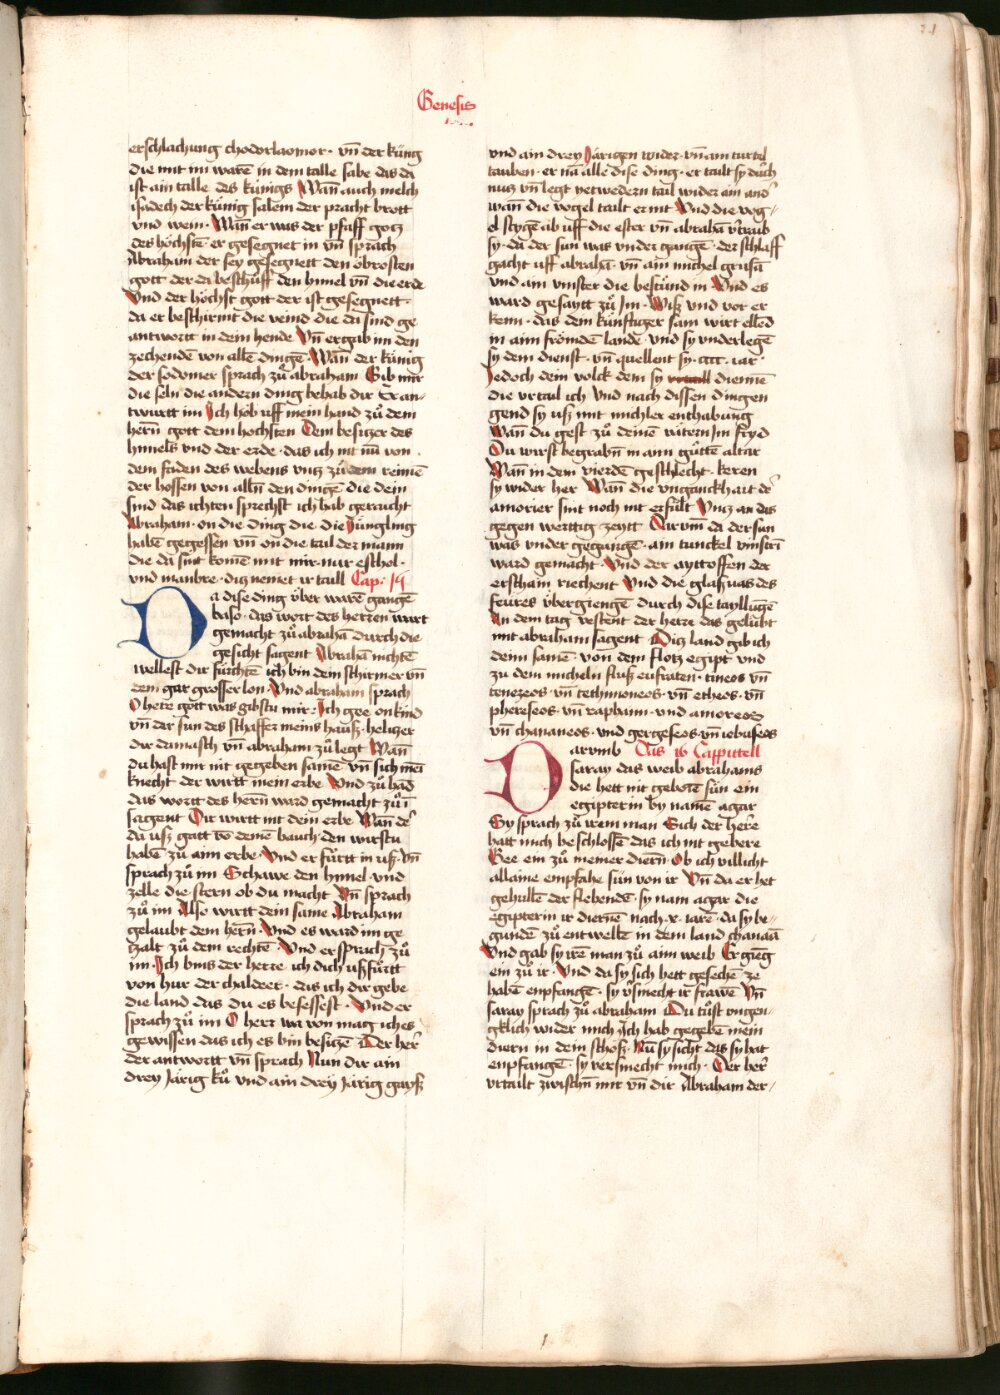 Genesis
erschlachung chodorlaomor · vn̄ der küng
die mit im warē in dem talle sabe das da
ist ain talle des künigs Wan̄ auch melch
isadech der künig salem der pracht brott
vnd wein · Wan̄ er was der pfaff gotz
des höchstē · er gesegnet in vn̄ sprach
Abraham der sey gesegnett den öbrosten
gott der da beschůff den himel vn̄ die erde
Vnd der höchst gott der ist gesegnett ·
da er beschirmt die veind die da sind ge
antwortt in dein hende Vn̄ er gab im den
zechenden von allē dingē · Wan̄ der künig
der sodomer sprach zů abraham Gib mir
die seln die andern ding behab dir Er an-
twurtt im Ich hőb uff mein hand zů dem
hern̄ gott dem hochsten Dem besitzer des
himels vnd der erde · das ich nit nu von ·
dem faden des webens vntz zů dem reimē
der hossen von alln̄ den dingē die dein
sind das ichten sprechst ich hab gericht
Abraham · on die ding die die Jüngling
habē gegessen vn̄ on die tail der mann
die da sint komē mit mir · nur eschol ·
vnd manbre · ditz nemet ir taill Cap: 15
a dise ding über warē gangē
baso · das wort des herren wart
gemacht zů abrahā durch die
gesicht sagent Abrahā nichtē
wellest dir fürchtē ich bin dem schirmer vn̄
dem gar grosser lon · Vnd abraham sprach
O here gott was gibstu mir : Ich gee on kind
vn̄ der sun des schaffer meins hauß · helitzer
dir damasch vn̄ abraham zů legt Wan̄
du hast mir nit gegeben samē vn̄ sich mei
knecht der wirtt mein erbe Vnd zů had
das wortt des hern̄ ward gemacht zů ī
sagent Dir wirtt nit dein erbe Wan̄ dē
da uß gatt vō demē bauch den wirstu
haben zů aim erbe · Vnd er fürtt in uß · vn̄
sprach zů im Schawe den himel · vnd
zelle die · stern ob du macht Vn̄ sprach
zů im Also wirtt dein same Abraham
gelaubt dem hern̄ · Vnd es ward im ge
tzalt zů dem rechtē · Vnd er sprach zů
im · Ich bins der herre ich dich ußfürtt
von hur der chaldeer · das ich dir gebe
die land das du es besessest · Vnd er
sprach zů im O herr wa von mag ich es
gewissen das ich es bin besitzē Der her
der antwortt vn̄ sprach Nun dir ain
drey Järig ků vnd ain drey Järig gayß
vnd ain drey Järigen wider · vn̄ am turtel
tauben · er nā alle dise ding · er tailt sy durch
mitz vn̄ legt yetwedern tail wider ain and
wan̄ die vogel tailt er nit Vnd die vog-
el stygē ab uff die eser vn̄ abrahā v̄traib
sy · da der sun was vnder gangē · der schlaff
gacht uff abrahā · vn̄ ain michel grusā
vnd ain vinster die bestůnd in Vnd es
ward gesaytt zů Im · Wiß vnd vor er
kenn · das dem künftiger sam wirt ellēd
in aim frömden lande · vnd sy vnderlegē
sy dem dienst · vn̄ quellent sy · cccc · iar ·
Jedoch dein volck dem sy dienē
die vrtail ich Vnd nach dissen dingen
gend sy uß mit michler enthabung
Wan̄ du gest zů deinē vätern Im fryd
Du wirst begrabn̄ in aim gůttē altar
Wan̄ in dem vierdē geschlecht · keren
sy wider her Wan̄ die vngänckhait dē
amorier sint noch nit erfült Vntz an das
gegen wertig zeytt Darvm̄ da der sun
was vnder gegangē · am tunckel vinstri
ward gemacht · Vnd der ayttoffen der
erscham riechent Vnd die glaß vas des
feures übergiengē durch dise tayllugē
An dem tag vestent der herr das gelübt
mit abraham sagent Ditz land gib ich
deim samē · von dem flotz egipt vnd
zu dem micheln fluß eufraten · cineos vn̄
cenezeos · vn̄ techmoneos · vn̄ etheos · vn̄
phereseos · vn̄ raphaim · vnd amoreos
vn̄ chananeos · vnd gergeseos · vn̄ iebuseos
arvmb Das 16 Cappitell
saray das weib abrahams
die hett nit geborē sün ein
egipterin by namē agar
Sy sprach zů irem man Sich der herre
hatt mich beschlossē das ich nit gebere
Gee ein zů meiner diern̄ Ob ich villicht
allaine empfahe sün von ir Vn̄ da er het
gehullē der flehendē · sy nam agar die
egipterin ir diernē nach · x · iarē · da sy be-
gundē zů entwellē in dem land chanaā
Vnd gab sy irē man zů aim weib Er gieng
ein zů ir · Vnd da sy sich hett gesechē ze
habē enpfangē · sy v̄smecht ir frawē Vn̄
saray sprach zů abraham Du tůst vngen-
gklich wider mich Ich hab gegebē mein
diern in dem schoß · Nu sy sicht das sy hat
enpfangē · sy versmecht mich · Der herr
vrtailt zwischn̄ mir vn̄ dir Abraham der-